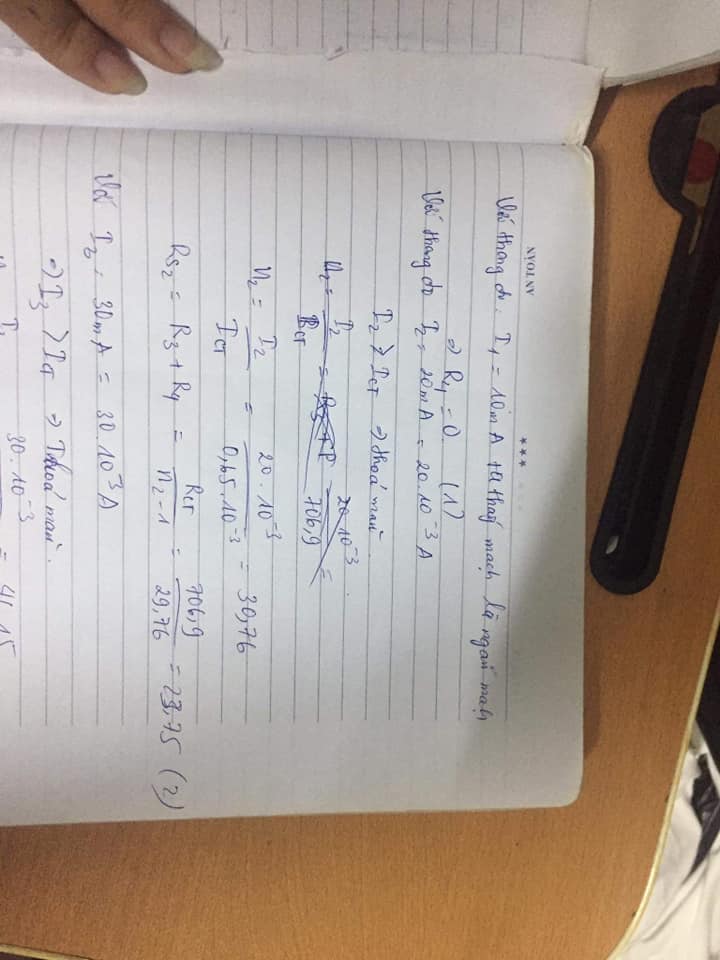 AN TOÀN
***
Với thang đo. I1 = 10mA ta thấy mạch là ngắn mạch
=> R4 = 0. (1)
Với thang đo I2 = 20mA = 20.10^-3 A
I2 > ICT => thoả mãn.
n2 = I2 / RCT = R3 + R = 20.10^-3 / 706,9 =
n2 = I2 / ICT = 20.10^-3 / 0,65.10^-3 = 30,76
RS2 = R3 + R4 = RCT / n2-1 = 706,9 / 29,76 = 23,75 (2)
Với I3 = 30mA = 30.10^-3 A
=> I3 > ICT => Thoả mãn.
30.10^-3
= 41,15